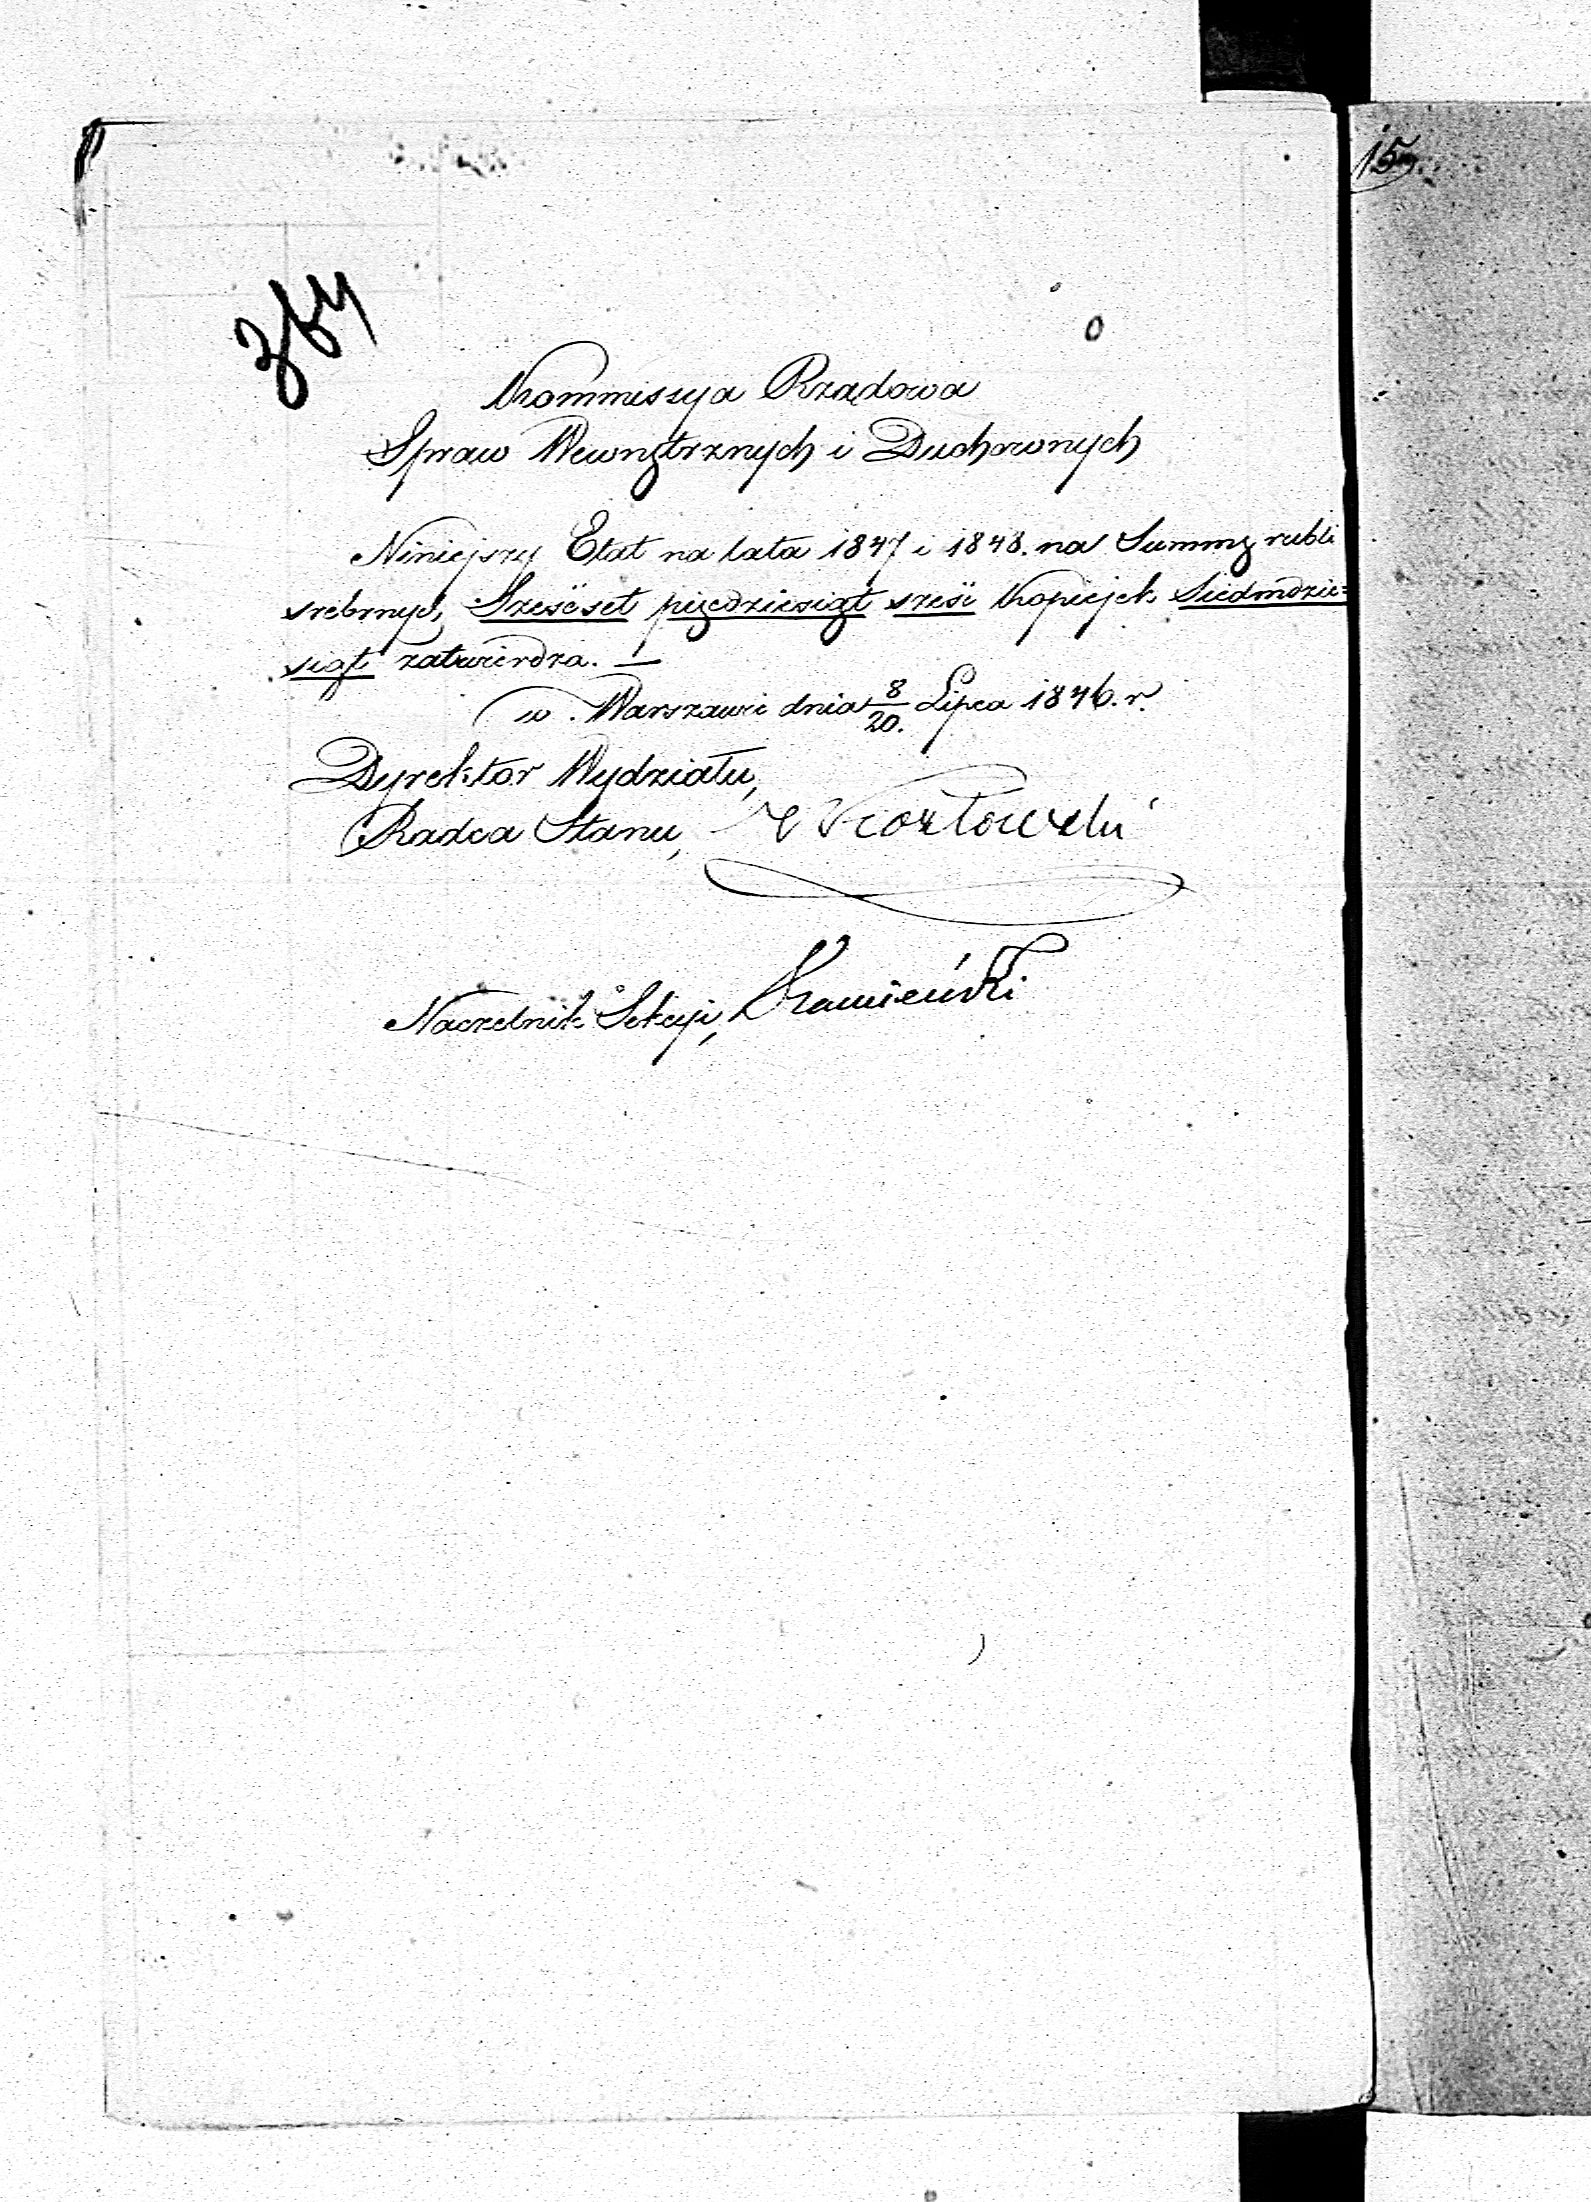 15
Kommissya Rządowa
Spraw Wewnętrznych i Duchownych
Niniejszy Etat na lata 1847 i 1848. na Summę rubli
srebrnych, Sześćset pięćdziesiąt sześć kopiejek Siedmdzie=
siąt zatwierdza. —
w. Warszawie dnia 8/20. Lipca 1846. r.
Dyrektor Wydziału,
Radca Stanu, Kozłowski
Naczelnik Sekcyi, Kamieński